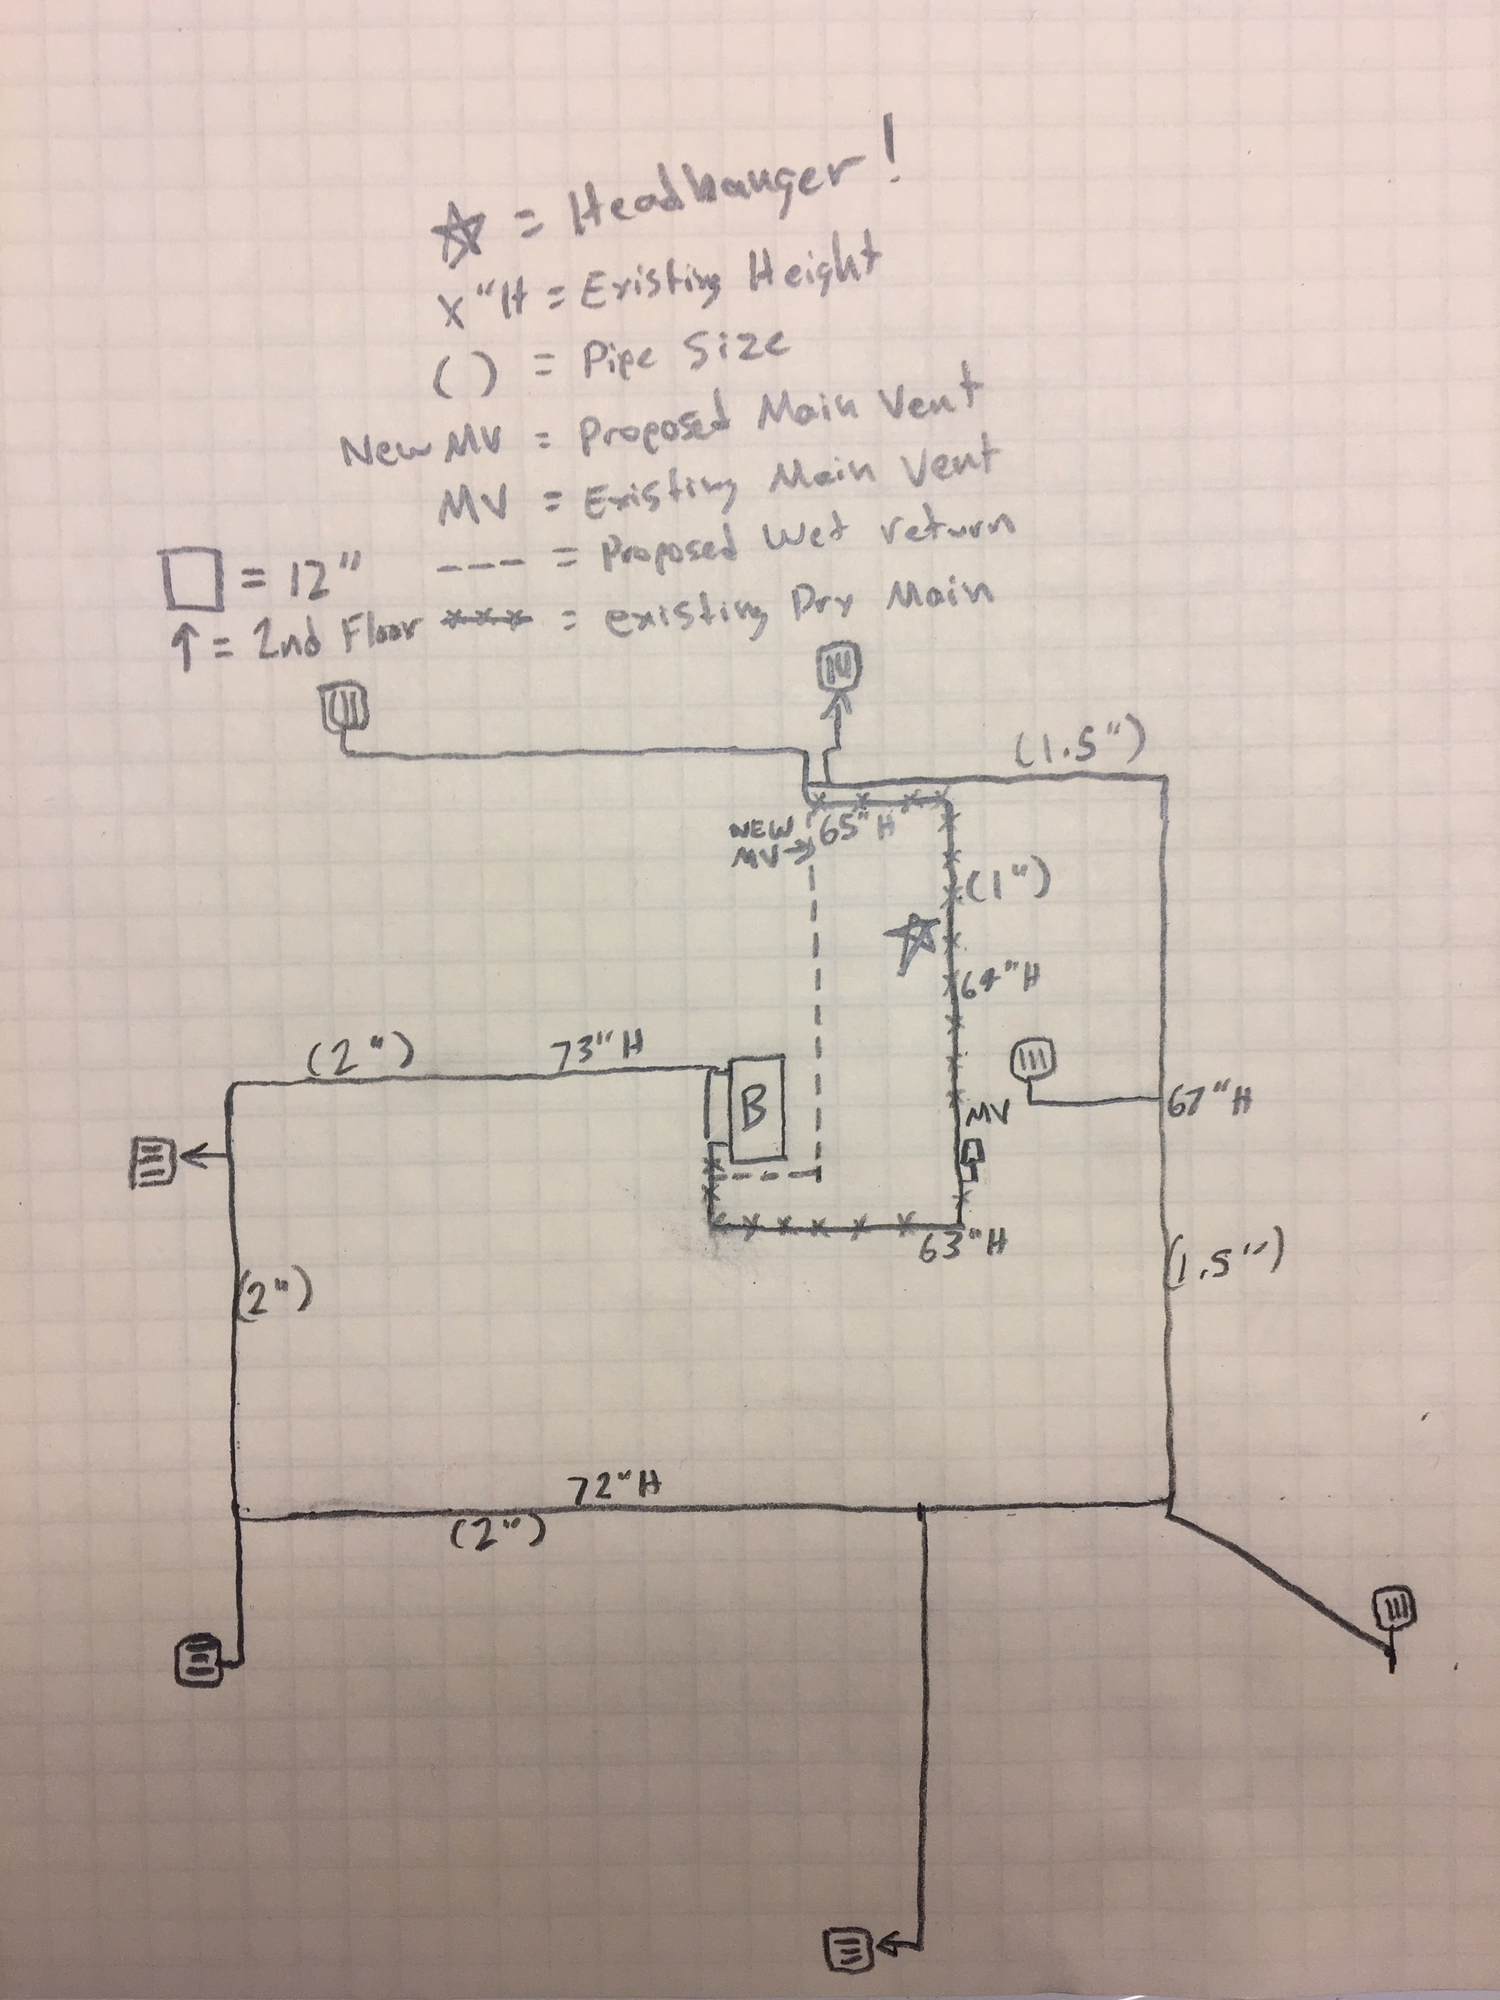 ☆ = Headbanger!
x"H = Existing Height
( ) = Pipe Size
New MV = Proposed Main Vent
MV = Existing Main Vent
□ = 12" --- = Proposed Wet return
↑ = 2nd Floor xxx = existing Dry Main
(1.5")
NEW
MV→
65"H
(1")
64"H
(2")
73"H
B
MV
67"H
63"H
(1.5")
(2")
72"H
(2")